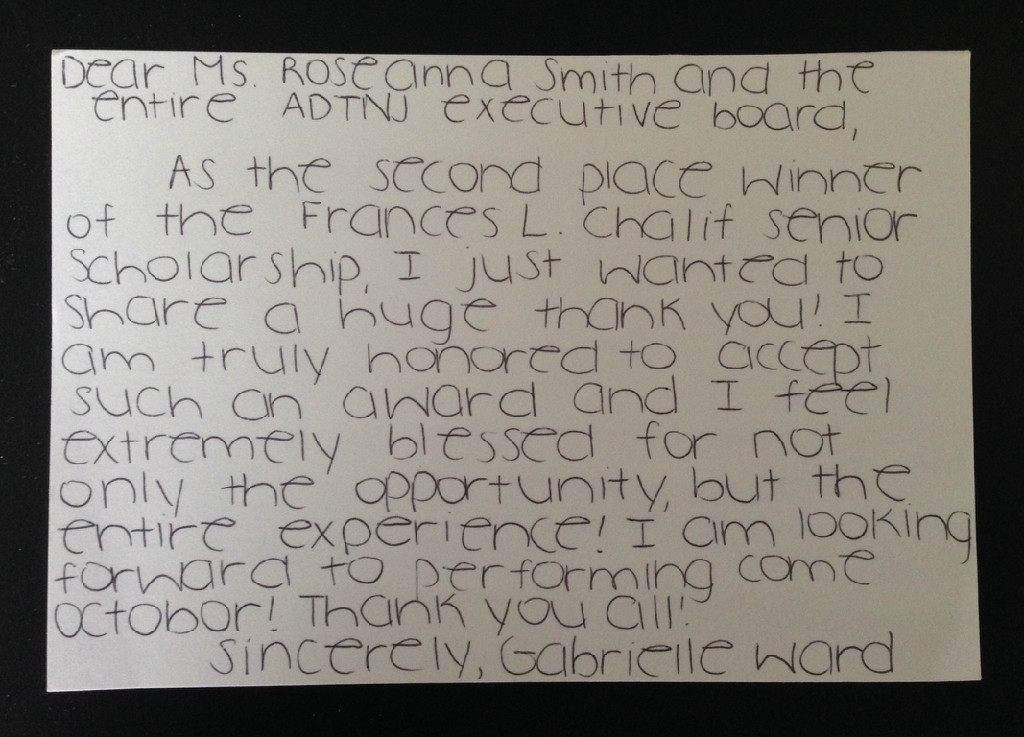 Dear Ms. Roseanna Smith and the
entire ADTNJ executive board,
As the second place winner
of the Frances L. Chalif senior
Scholarship, I just wanted to
share a huge thank you! I
am truly honored to accept
such an award and I feel
extremely blessed for not
only the opportunity, but the
entire experience! I am looking
forward to performing come
octobor! Thank you all!
Sincerely, Gabrielle Ward